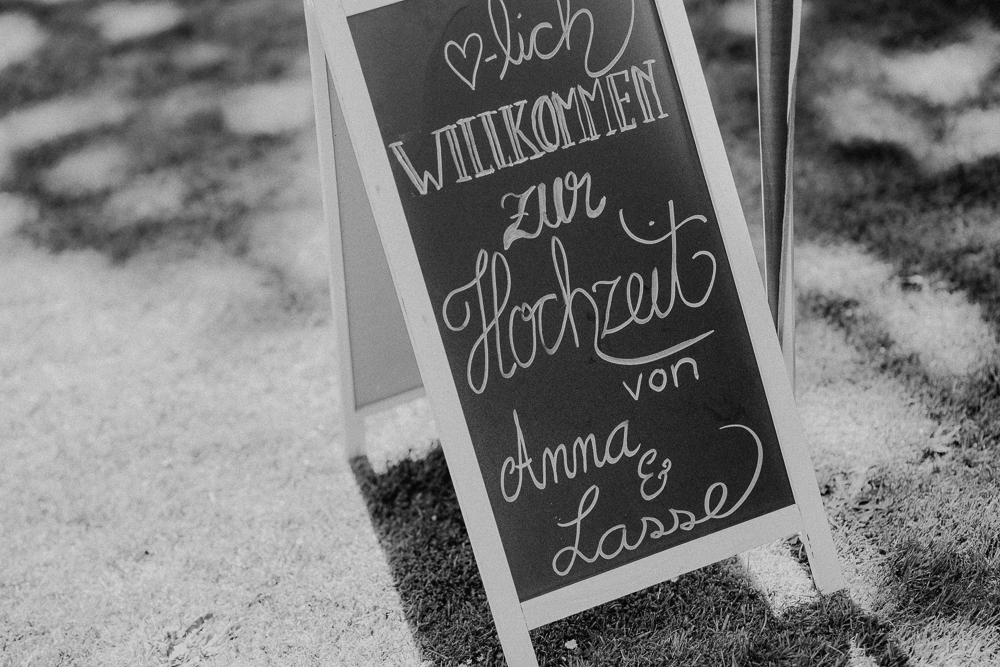 ♡-lich
WILLKOMMEN
zur
Hochzeit
von
Anna
&
Lasse